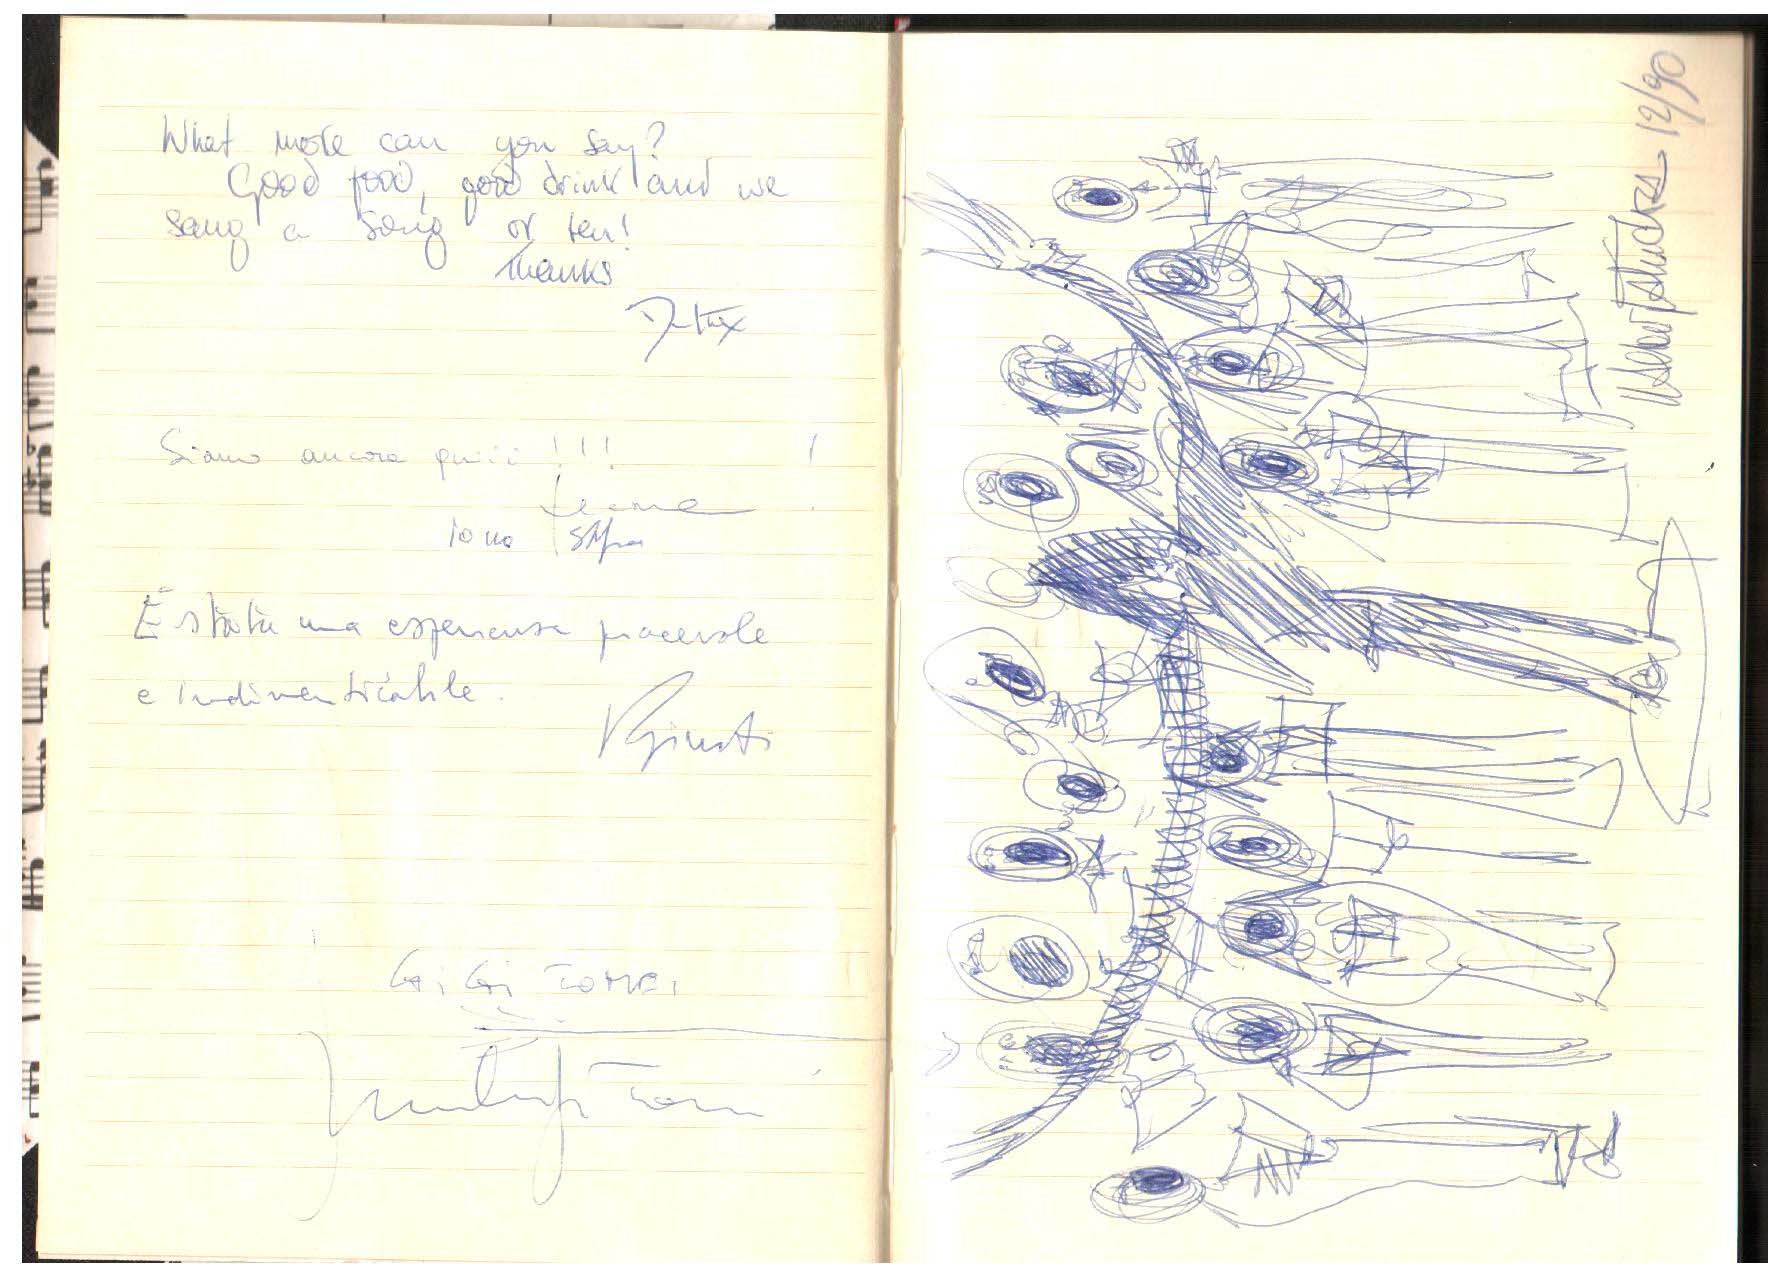 What more can you say?
Good food, good drink and we
sang a song or ten!
Thanks
Siamo ancora quiii !!! !
10 no
È stata una esperienza piacevole
e indimenticabile.
V Giusti
GiGi TOMEI
12/90